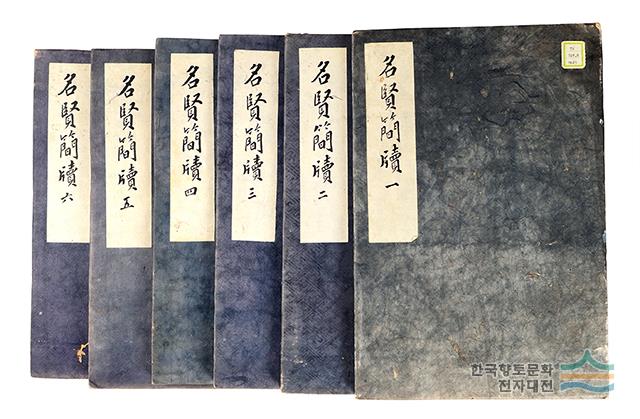 名賢簡牘 一
名賢簡牘 二
名賢簡牘 三
名賢簡牘 四
名賢簡牘 五
名賢簡牘 六
한국향토문화
전자대전